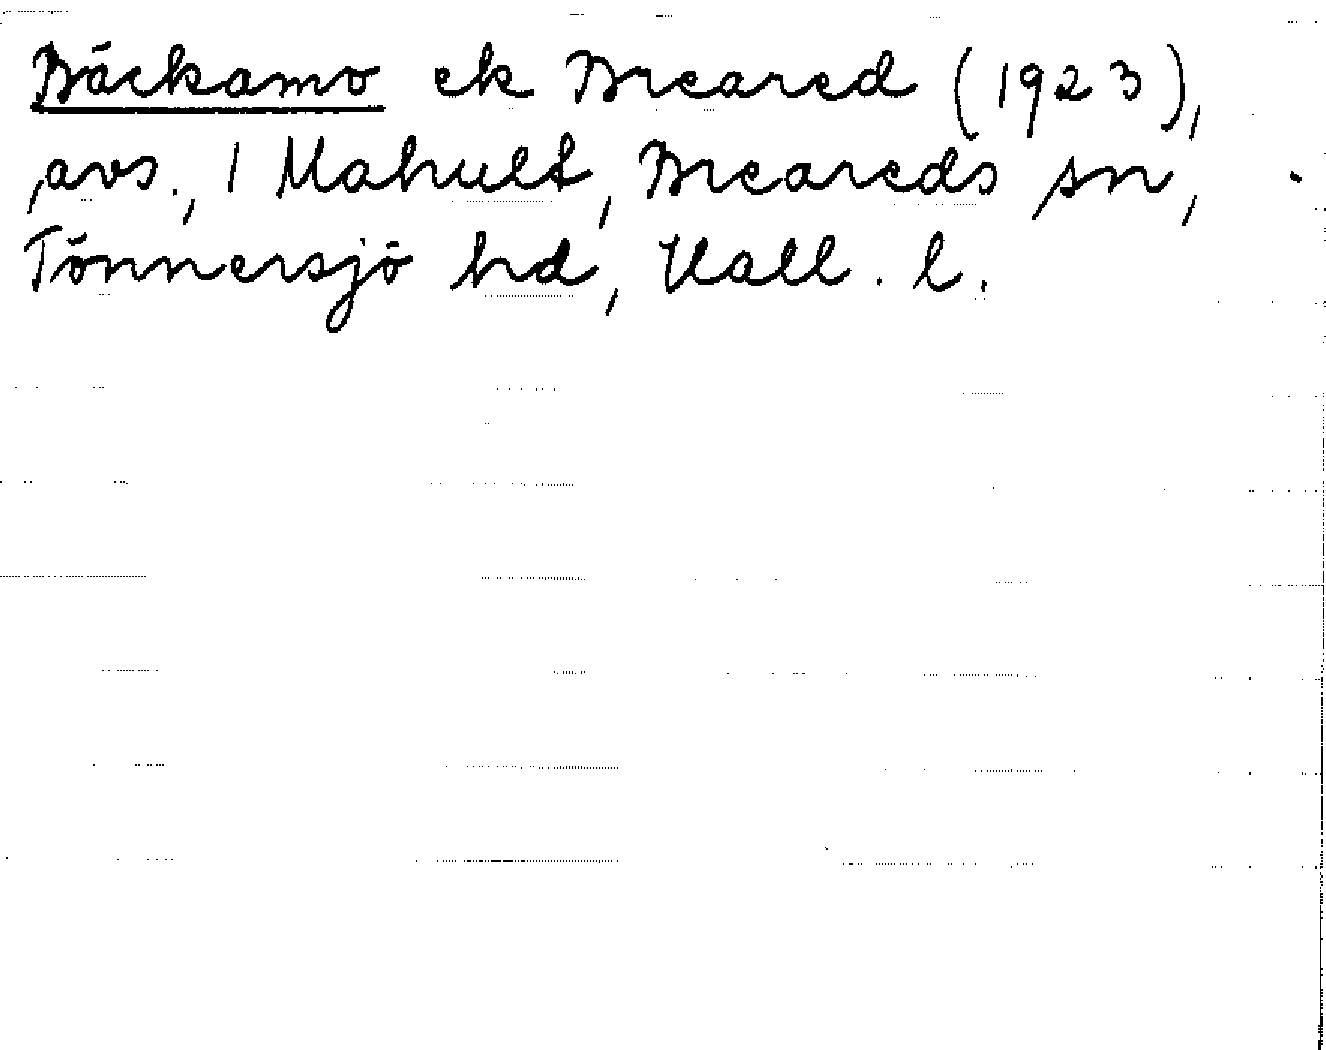 Bäckamo ek Breared (1923),
avs., 1 Mahult, Breareds sn,
Tönnersjö hd, Hall. l.